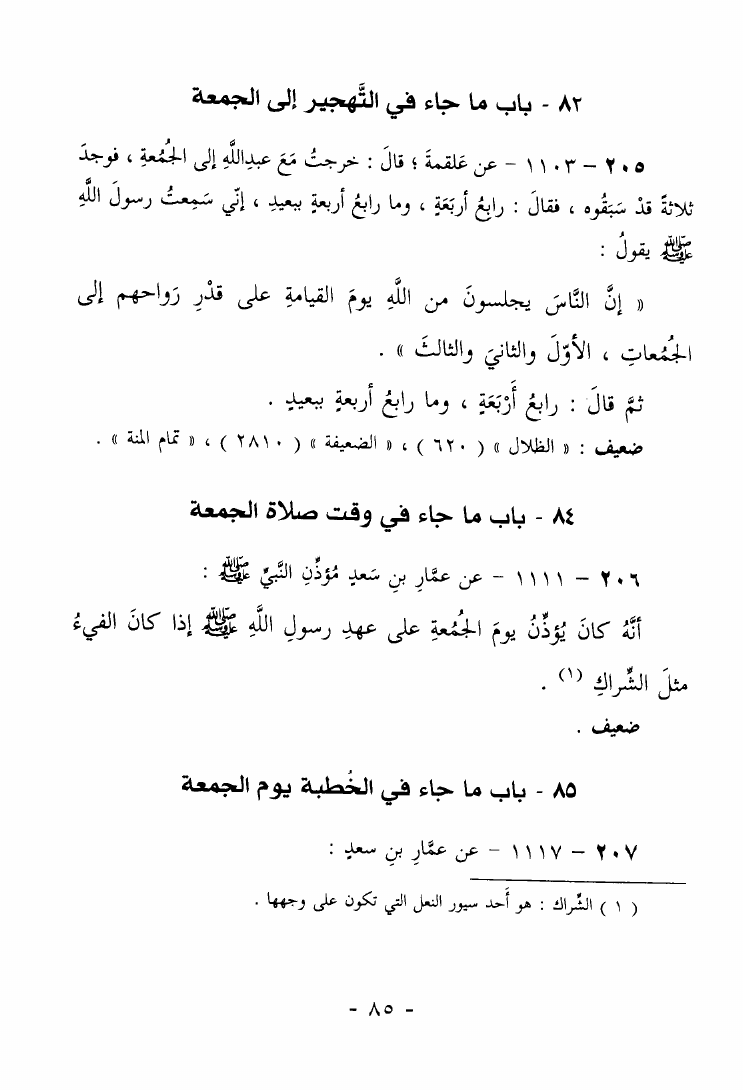 ٨٢ - باب ما جاء في التَّهجير إلى الجمعة
٢٠٥ – ١١٠٣ – عن عَلقمةَ ؛ قالَ : خرجتُ مَعَ عبدِاللَّهِ إلى الجُمعةِ ، فوجدَ
ثلاثةً قدْ سَبَقُوه ، فقالَ : رابعُ أربَعَةٍ ، وما رابعُ أربعةٍ ببعيدِ ، إنّي سَمِعتُ رسولَ اللَّهِ
ﷺ يقولُ :
« إنَّ النَّاسَ يجلسونَ من اللَّهِ يومَ القيامةِ على قدْرِ رَواحهم إلى
الجُمُعاتِ ، الأوّلَ والثانيَ والثالثَ » .
ثمَّ قالَ : رابعُ أَرْبَعَةٍ ، وما رابعُ أربعةٍ ببعيدٍ .
ضعيف : « الظلال » ( ٦٢٠ ) ، « الضعيفة » ( ٢٨١٠ ) ، « تمام المنة » .
٨٤ - باب ما جاء في وقت صلاة الجمعة
٢٠٦ – ١١١١ – عن عمَّارِ بنِ سَعدٍ مُؤذِّنِ النَّبيِّ ﷺ :
أنَّهُ كانَ يُؤذِّنُ يومَ الجُمُعةِ على عهدِ رسولِ اللَّهِ ﷺ إذا كانَ الفيءُ
مثلَ الشِّراكِ (١) .
ضعيف .
٨٥ - باب ما جاء في الخُطبة يوم الجمعة
٢٠٧ – ١١١٧ – عن عمَّارِ بنِ سعدٍ :
( ١ ) الشِّراك : هو أَحد سيور النعل التي تكون على وجهها .
- ٨٥ -